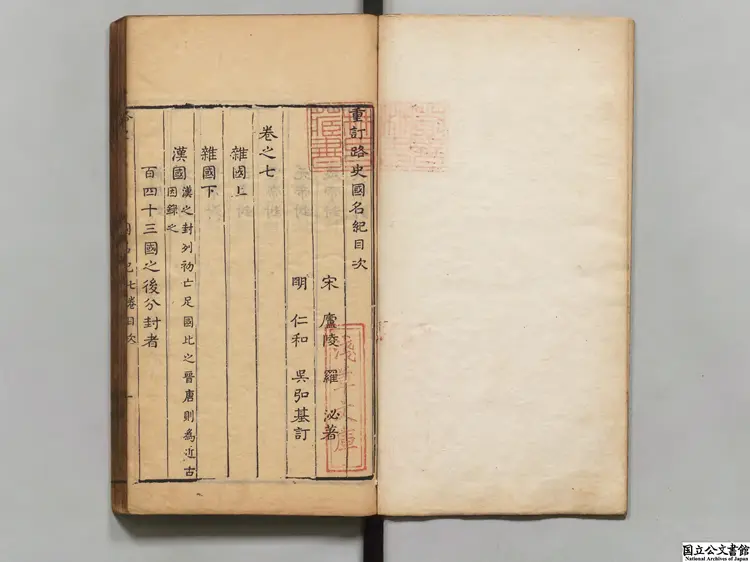 重訂路史國名紀目次
宋 廬陵 羅 泌著
明 仁和 吳弘基訂
卷之七
雜國上
雜國下
漢國 漢之封列初亡足國比之晉唐則為近古
因錄之
百四十三國之後分封者
國名紀七卷目次
淺草文庫
国立公文書館
National Archives of Japan